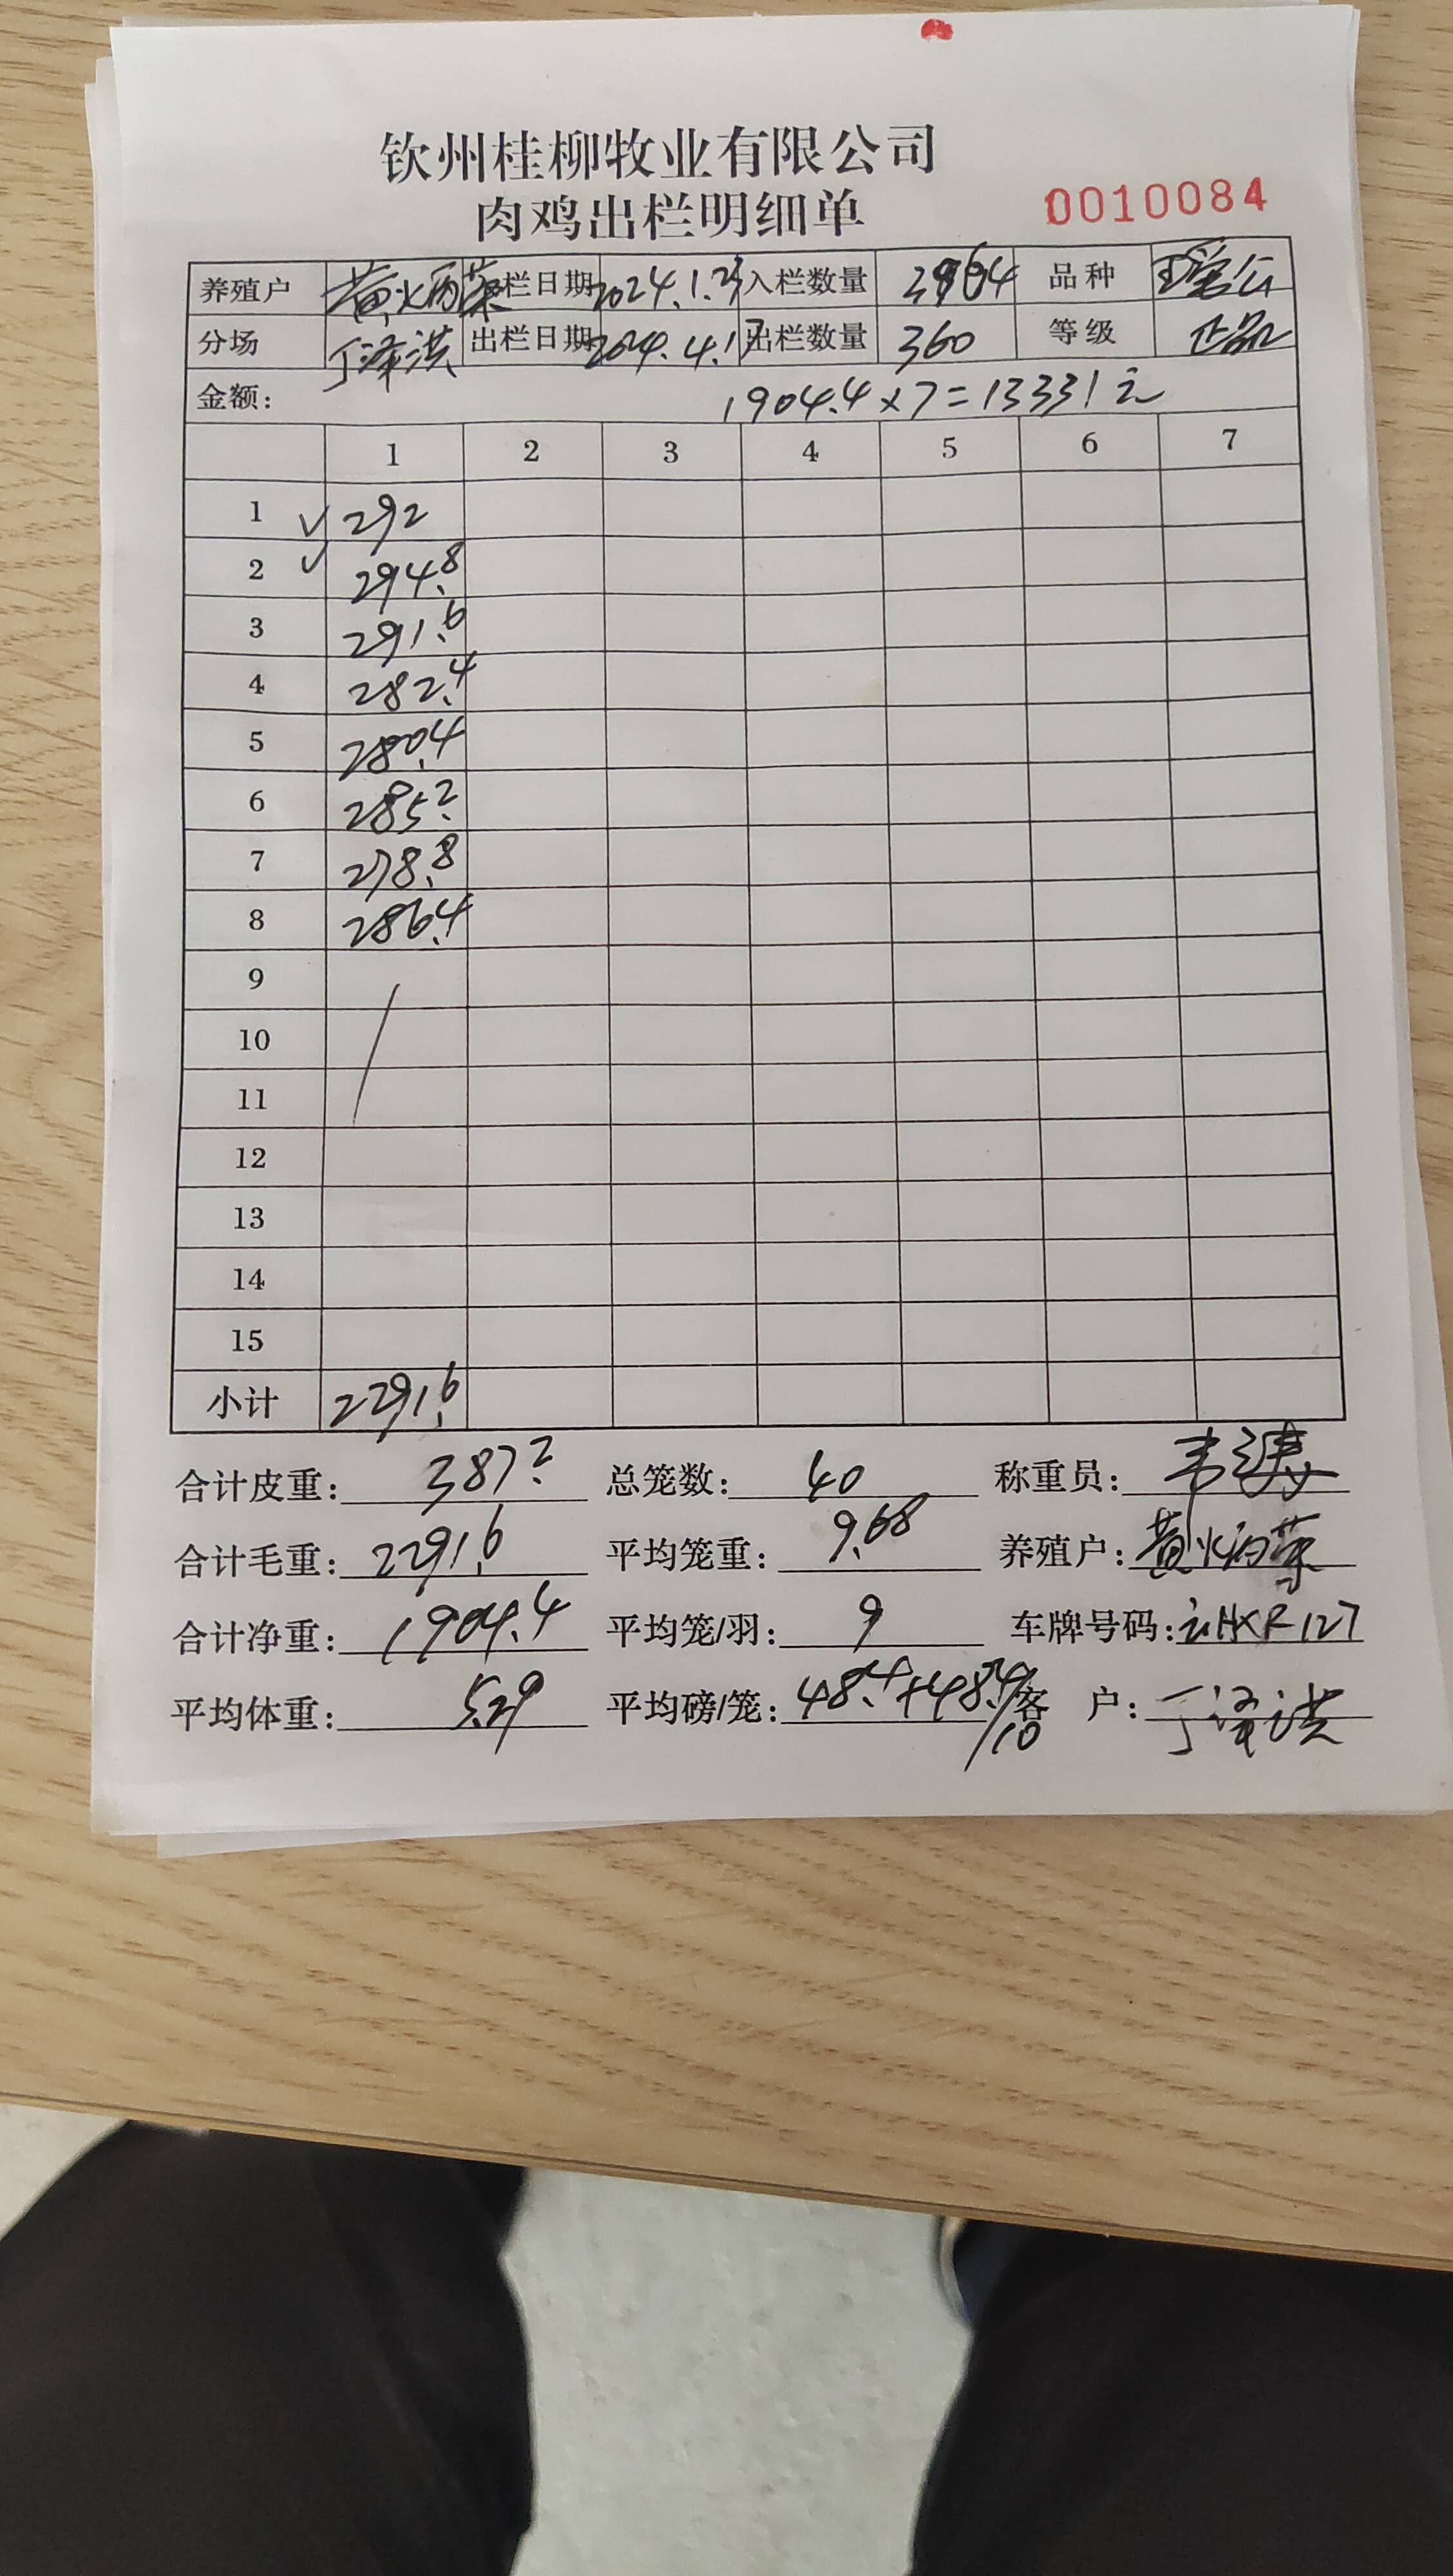 钦州桂柳牧业有限公司
肉鸡出栏明细单 0010084
养殖户 黄炳荣 栏日期 2024.1.23 入栏数量 品种
分场 丁泽洪 出栏日期 2024.4.17 出栏数量 360 等级 正品
金额: 1904.4×7=13331元
1 2 3 4 5 6 7
1 292
2 294.8
3 291.6
4 282.4
5 280.4
6 285.2
7 278.8
8 286.4
9
10
11
12
13
14
15
小计 2291.6
合计皮重: 387.2 总笼数: 40 称重员: 韦
合计毛重: 2291.6 平均笼重: 9.68 养殖户: 黄炳荣
合计净重: 1904.4 平均笼/羽: 9 车牌号码:
平均体重: 5.29 平均磅/笼: 48.4+48.4/10 客 户: 丁泽洪